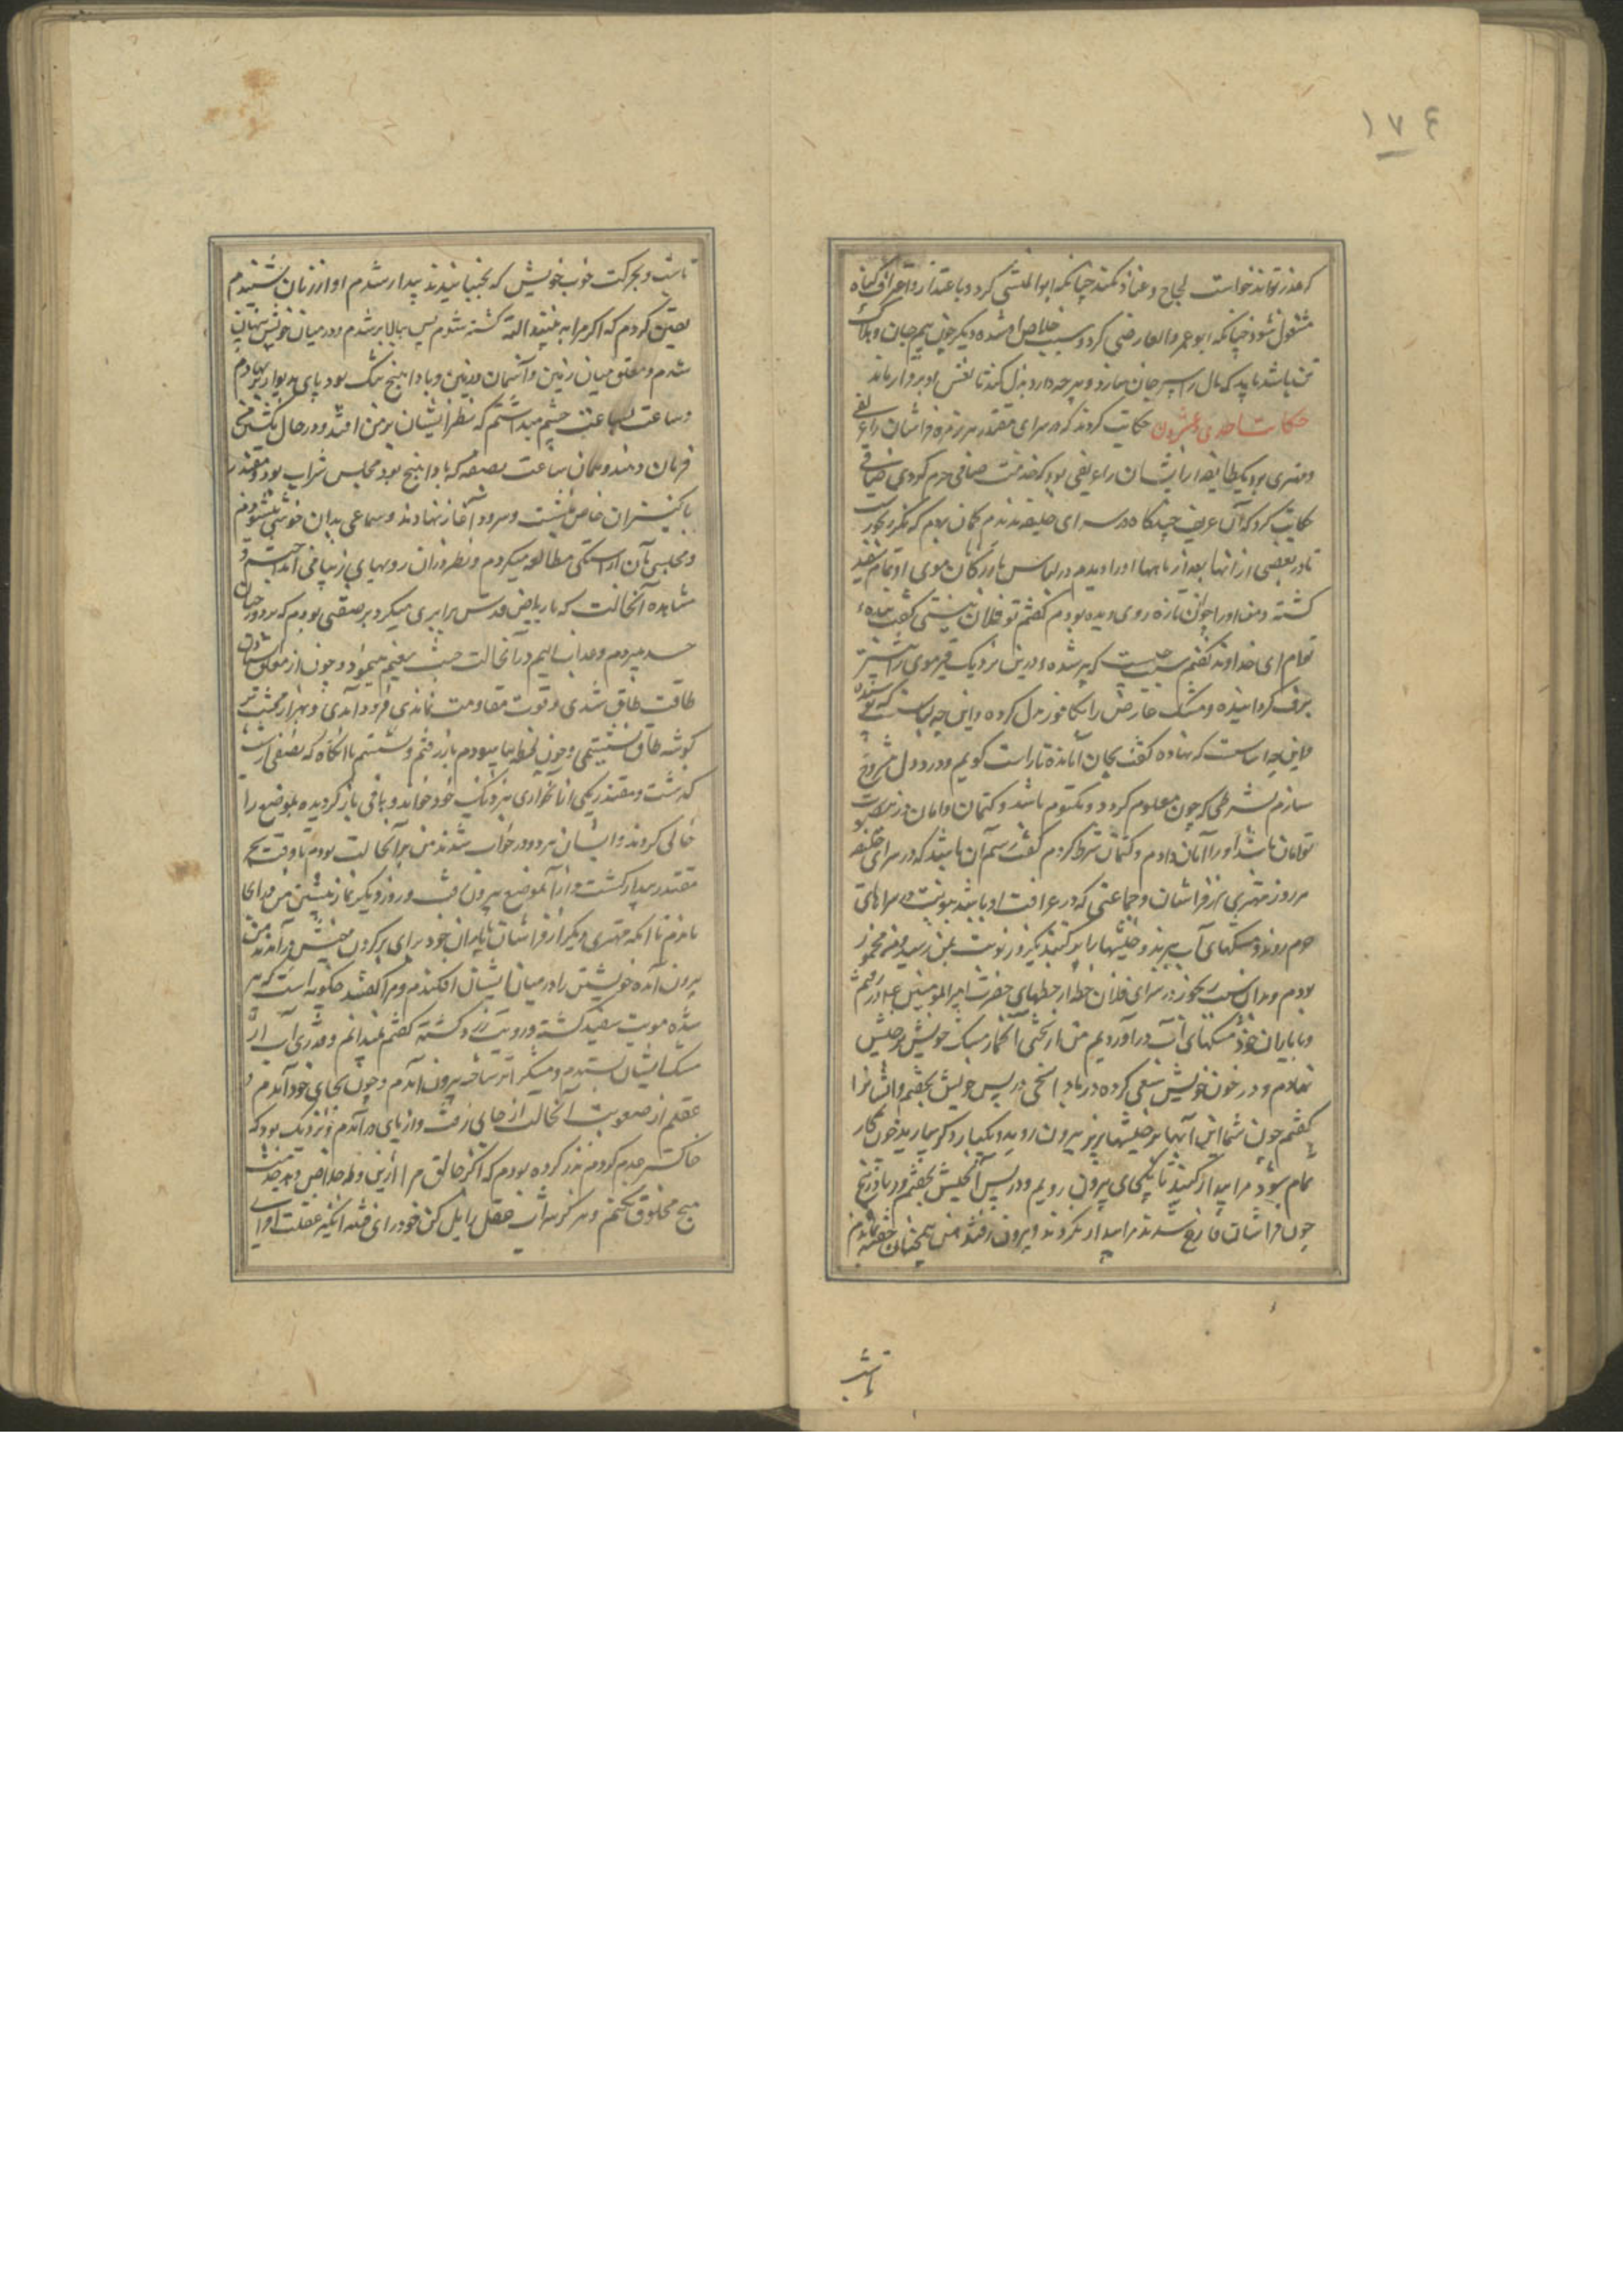 ۱۷۴
که عذر تواند خواست لجاج و عناد نکند چنانکه ابو المثنی کرد و باعتذار و اعتراف گناه
مشغول شود چنانکه ابو عمرو القاضی کرد و سبب خلاص او شد و دیگر چون بیم جان و هلاک
تن باشد باید که مال را سپر جان سازد و هرچه دارد بذل کند تا نفس او برقرار ماند
حکایت احدی و عشرون حکایت کردند که در سرای مقتدر هر زمره فراشان را عریفی
و مهتری بود یک طایفه را از ایشان عریفی بود که خدمت صافی حرم کردی صافی
حکایت کرد که آن عریف چندگاه در سرای خلیفه ندیدم گمان بردم که مگر رنجورست
تا در بعضی از آنها بعد از ماهها او را دیدم در لباس بازرگان موی او تمام سفید
گشته و من او را جوان تازه روی دیده بودم گفتم تو فلان نیستی گفت بنده
توام ای خداوند گفتم سبب چیست که پیر شده و درین نزدیک قیر موی را بشیر
برف گردانیده و مشک عارض را بکافور بدل کرده و این چه لباس است که پوشیده
و این چه اساس است که نهاده گفت بجان امان ده تا راست گویم و درد دل مشروح
سازم بشرطی که چون معلوم گردد مکتوم باشد و کتمان و امان
توامان باشد او را امان دادم و کتمان شرط کردم گفت رسم آن باشد که در سرای خلیفه
هر روز مهتری از فراشان و جماعتی که در عرافت او باشند بنوبت در سراهای
حرم روند و مشکهای آب برند و خیشها را تر کنند یک روز نوبت بمن رسید و من مخمور
بودم و بدان سبب رنجور در سرای فلان حظیه از حظیهای حضرت امیر المومنین در رفتم
و با یاران خود مشکهای آب در آوردیم من از سختی آن خمار مشک خویش بر خیش
نهادم و در خون خویش سعی کرده در بادآهنجی در پس خویش بخفتم و ایشان را
گفتم چون شما این آبها بر خیشها بریزید بیرون روید و یکبار دیگر بیارید چون کار
تمام شود مرا بیدار کنید تا بیکجای بیرون رویم و در پس آن خیش بخفتم در بادآهنج
چون فراشان فارغ شدند مرا بیدار نکردند و بیرون رفتند من همچنان خفته بماندم
تا شب
تا شب و بحرکت خوب خویش که بجنبانیدند بیدار شدم آواز زنان شنیدم
یقین کردم که اگر مرا ببینند البته کشته شوم پس ببالا بر شدم و در میان خیش پنهان
شدم و معلق میان زمین و آسمان و این بادآهنج تنگ بود پای بدیوار باز نهادم
و ساعت بساعت چشم میداشتم که نظر ایشان بر من افتد و در حال بکشتن من
فرمان دهند و همان ساعت بصفه که بادآهنج بود مجلس شراب بود و مقتدر
با کنیزان خاص بنشست و سرود آغاز نهادند و سماعی بدان خوشی میشنودم
و مجلسی بآن آراستگی مطالعه میکردم و نظر در آن رویهای زیبا می انداختم و
مشاهده آن حالت که با ریاض قدس برابری میکرد بر صفتی بودم که بر دزدان
حسد میبردم و عذاب الیم در آن حالت جنب نعیم مینمود و چون از معلق ایستادن
طاقت طاق شدی و قوت مقاومت نماندی فرود آمدی و بهزار محنت بر
گوشه طاق بنشستمی و چون لحظه بیاسودم باز رفتم و نشستم تا آنگاه که نصفی از شب
گذشت و مقتدر یکی از آن جواری بنزدیک خود خواند و باقی باز گردیده موضع را
خالی کردند و ایشان هر دو در خواب شدند من بر آن حالت بودم تا وقت سحر
مقتدر بیدار گشت و از آن موضع بیرون رفت و روز دیگر نماز پیشین من در آنجا
ماندم تا آنکه مهتری دیگر از فراشان با یاران خود برای تر کردن خیش در آمدند من
بیرون آمده خویشتن را در میان ایشان افکندم و مرا گفتند چگونه است که پیر
شده مویت سفید گشته و رویت زرد گشته گفتم نمیدانم و قدری آب از
مشک ایشان بستدم و مشک را تر ساخته بیرون آمدم و چون بجای خود آمدم
عقلم از صعوبت آن حالت از جای رفت و از پای در آمدم و نزدیک بود که
خاکستر عدم گردم نذر کرده بودم که اگر خالق مرا ازین ورطه خلاص دهد خدمت
هیچ مخلوق نکنم و هرگز شراب عقل زایل کن نخورم این فتنه انگیز غفلت افزای